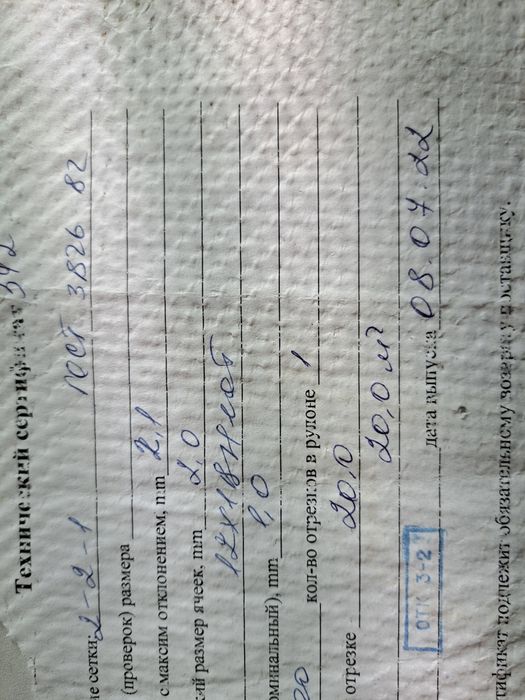 Технический сертификат 342
ие сетки: 2-2-1 ГОСТ 3826 82
(проверок) размера
с максим отклонением, mm 2,1
ий размер ячеек, mm 2,0
12Х18Н10Т
оминальный), mm 1,0
кол-во отрезков в рулоне 1
отрезке 20,0
20,0 м²
ОТК 3-2 дата выпуска 08.07.22
тификат подлежит обязательному возврату поставщику.